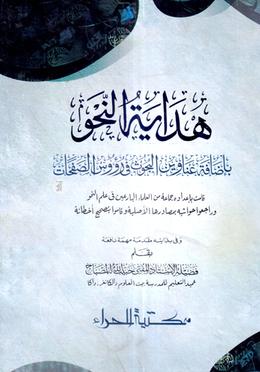 هداية النحو
بإضافة عناوين البحوث في رؤوس الصفحات
قامت بإعداده جماعة من العلماء البارعين في علم النحو
وراجعوا حواشيه بمصادرها الأصلية وقاموا بتصحيح أخطائه
وفي بدايته مقدمة مهمة نافعة
بقلم
فضيلة الأستاذ المفتي
عميد التعليم للمدرسة بيت العلوم داكا
مكتبة الحراء